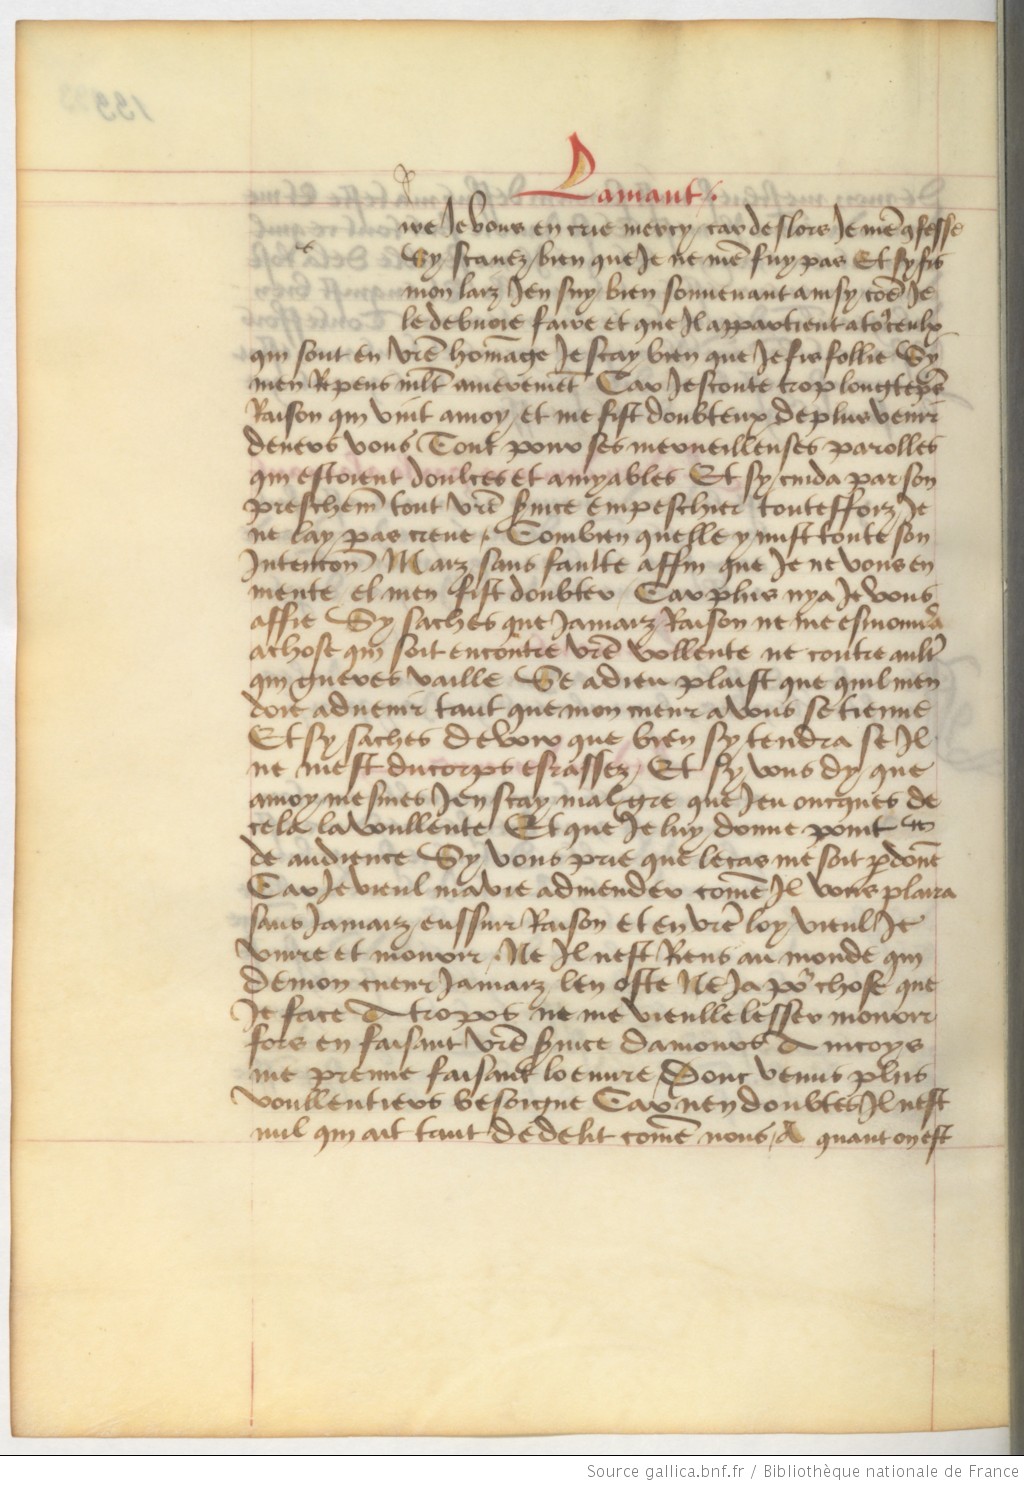 Lamant
ire Je vous en crie mercy car deslors Je me ̃ 9fesse
Sy scauez bien que Je ne me ̃ fuy pas Et sy fis
mon larz Jen suy bien souuenant ainsy co ̃e Je
le debuoie faire et que Il appartient a to9 ceulx
qui sont en vr ̃e hom ̃age Je scay bien que Je fis follie Sy
men Repens ml ̃t amerem ̃et Car Jescoute trop longteps ̃
Raison qui vint a moy et me fist doubteux de plus venir
deuers vous Tout pour ses merueilleuses parolles
qui estoient doulces et amyables Et sy cuida par son
preschem ̃ tout vr ̃e ß ̃uice empeschier toutefforz Je
ne lay pas creue Combien quelle y mist toute son
Intencon ̃ Maiz sans faulte affin que Je ne vous en
mente el men fist doubter Car plus nya Je vous
affie Sy saches que Jamaiz Raison ne me esmouu ̃a
a chose qui soit encontre vr ̃e vollente ne contre aultr ̃
qui gueres vaille Se a dieu plaist que quil men
doie aduenir tant que mon cueur a vous se tienne
Et sy saches de voir que bien sy tendra se Il
ne mest du corps esrassez Et sy vous dy que
a moy mesmes Jen scay mal gre que Jeu oncques de
cela la voullente Et que Je luy donne point
de audience Sy vous prie que le cas me soit p ̃don ̃e
Car Je vieul ma vie admender com ̃e Il vous plaira
sans Jamaiz ensuir Raison et en vr ̃e loy vieul Je
viure et mourir Ne Il nest Riens au monde qui
de mon cueur Jamaiz len oste Ne Ja po ̃ chose que
Je face Atropos ne me vieulle lesser mourir
fors en faisant vr ̃e ß ̃uice damours Aincoys
me prenne faisant loeuure Donc venus plus
voullentiers besoigne Car nen doubtes Il nest
nul qui ait tant de delit com ̃e nous A quant on est
Source gallica.bnf.fr / Bibliothèque nationale de France